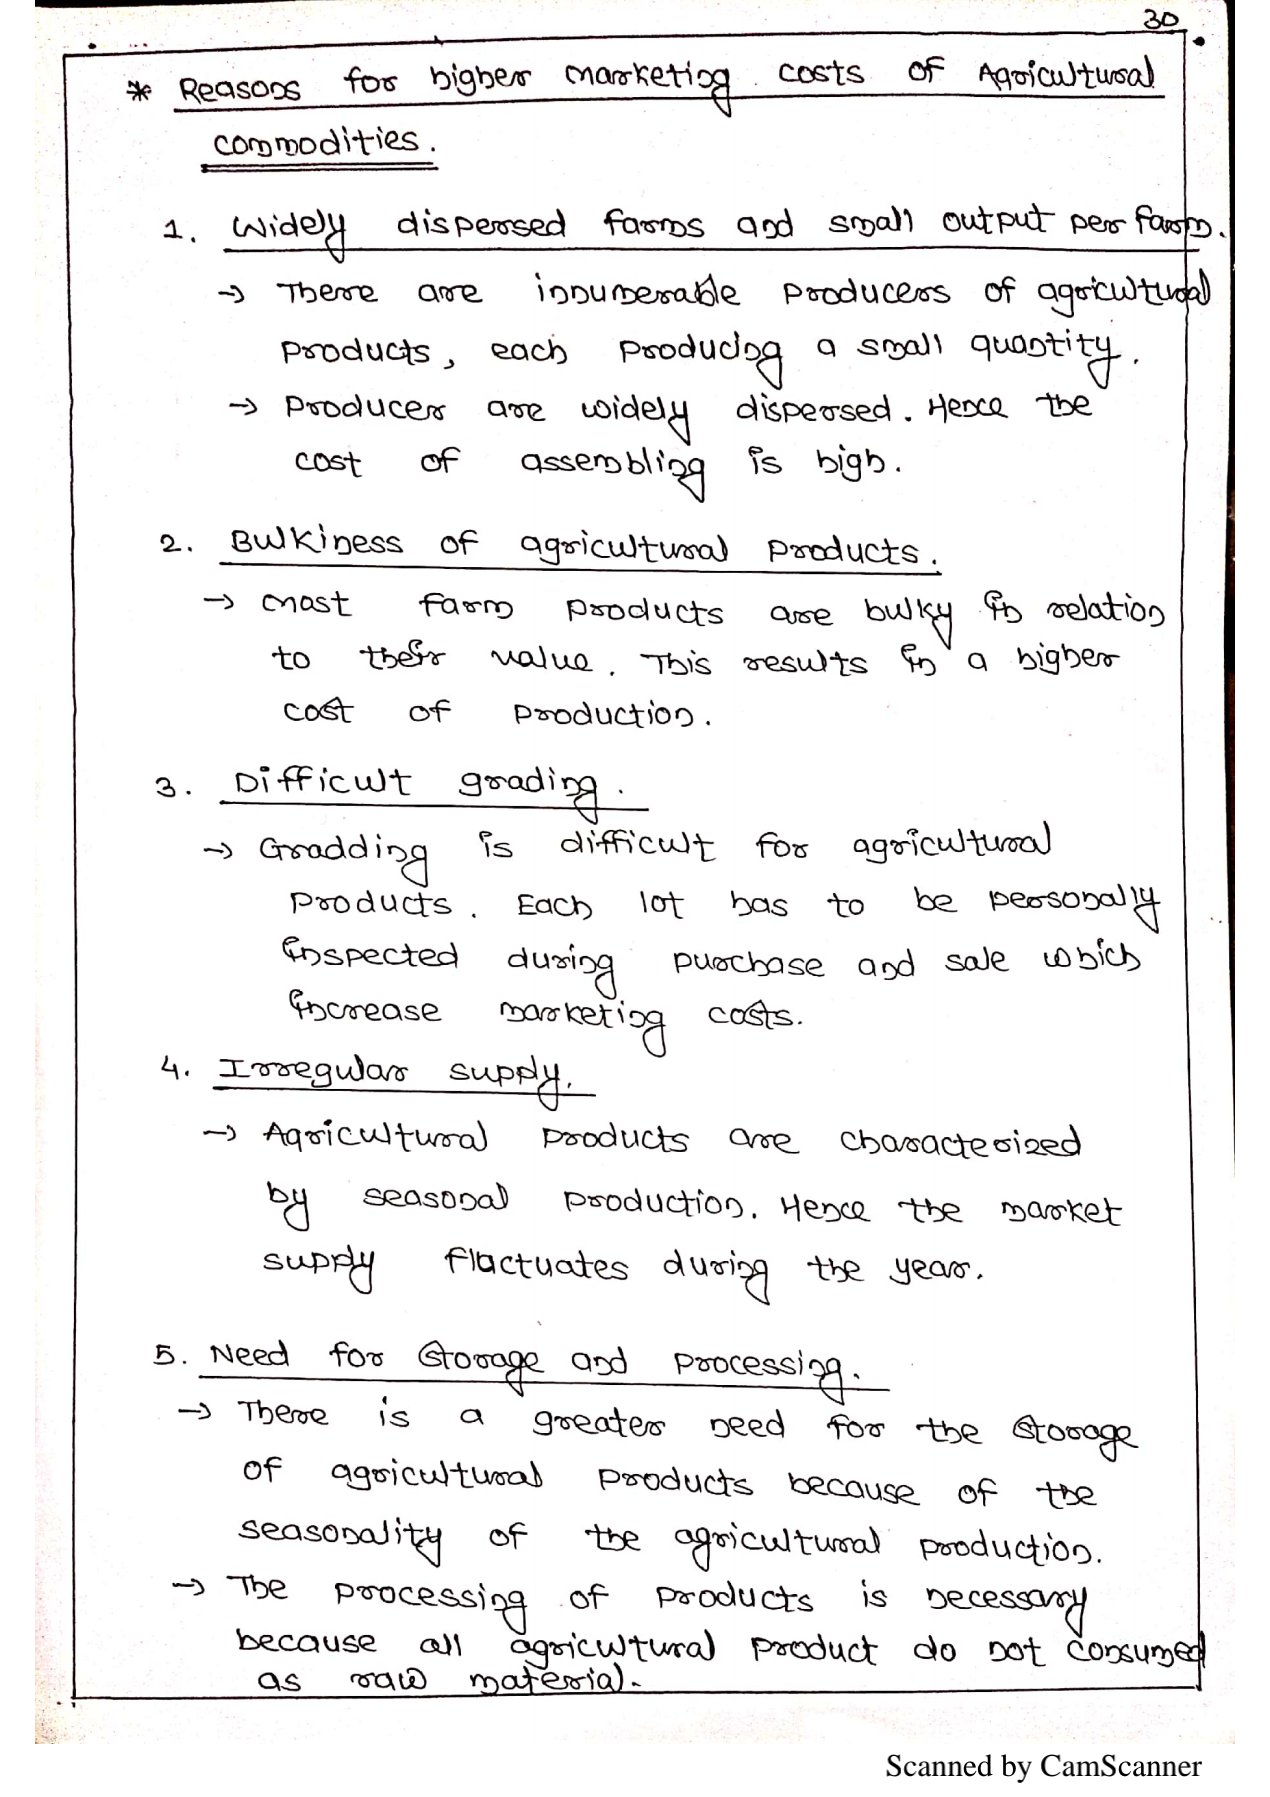 30
* Reasons for higher marketing costs of Agricultural
commodities.
1. Widely dispersed farms and small output per farm.
→ There are innumerable producers of agricultural
products, each producing a small quantity.
→ Producer are widely dispersed. Hence the
cost of assembling is high.
2. Bulkiness of agricultural products.
→ most farm products are bulky in relation
to their value. This results in a higher
cost of production.
3. Difficult grading.
→ Gradding is difficult for agricultural
products. Each lot has to be personally
inspected during purchase and sale which
increase marketing costs.
4. Irregular supply.
→ Agricultural products are characterized
by seasonal production. Hence the market
supply fluctuates during the year.
5. Need for storage and processing.
→ There is a greater need for the storage
of agricultural products because of the
seasonality of the agricultural production.
→ The processing of products is necessary
because all agricultural product do not consumed
as raw material.
Scanned by CamScanner